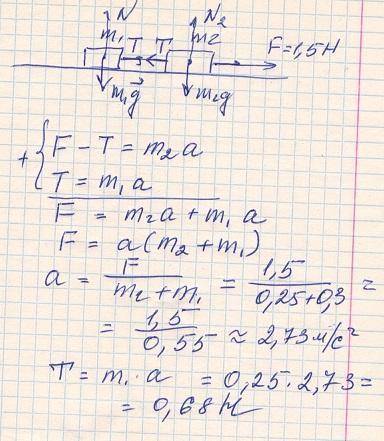 N N₂
m₁ T T m₂ F=1,5Н
m₁g⃗ m₂g
+ { F - T = m₂a
T = m₁a
F = m₂a + m₁a
F = a(m₂+m₁)
a = F/(m₂+m₁) = 1,5/(0,25+0,3) =
= 1,5/0,55 ≈ 2,73м/с²
T = m₁·a = 0,25·2,73=
= 0,68Н